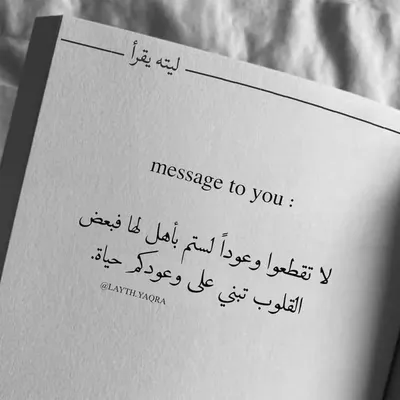 ليته يقرأ
message to you :
لا تقطعوا وعوداً لستم بأهل لها فبعض
القلوب تبني على وعودكم حياة.
@LAYTH.YAQRA